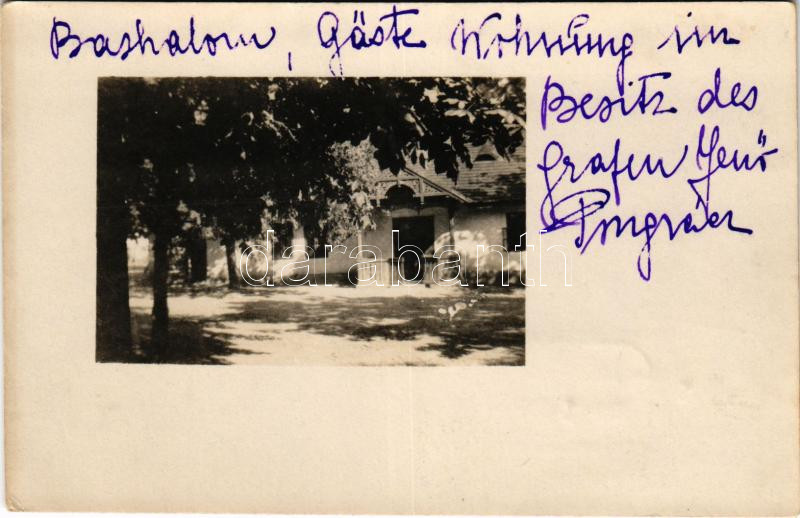 Bashalom, Gäste Wohnung im
Besitz des
Grafen Jenő
Pongrácz
darabanth